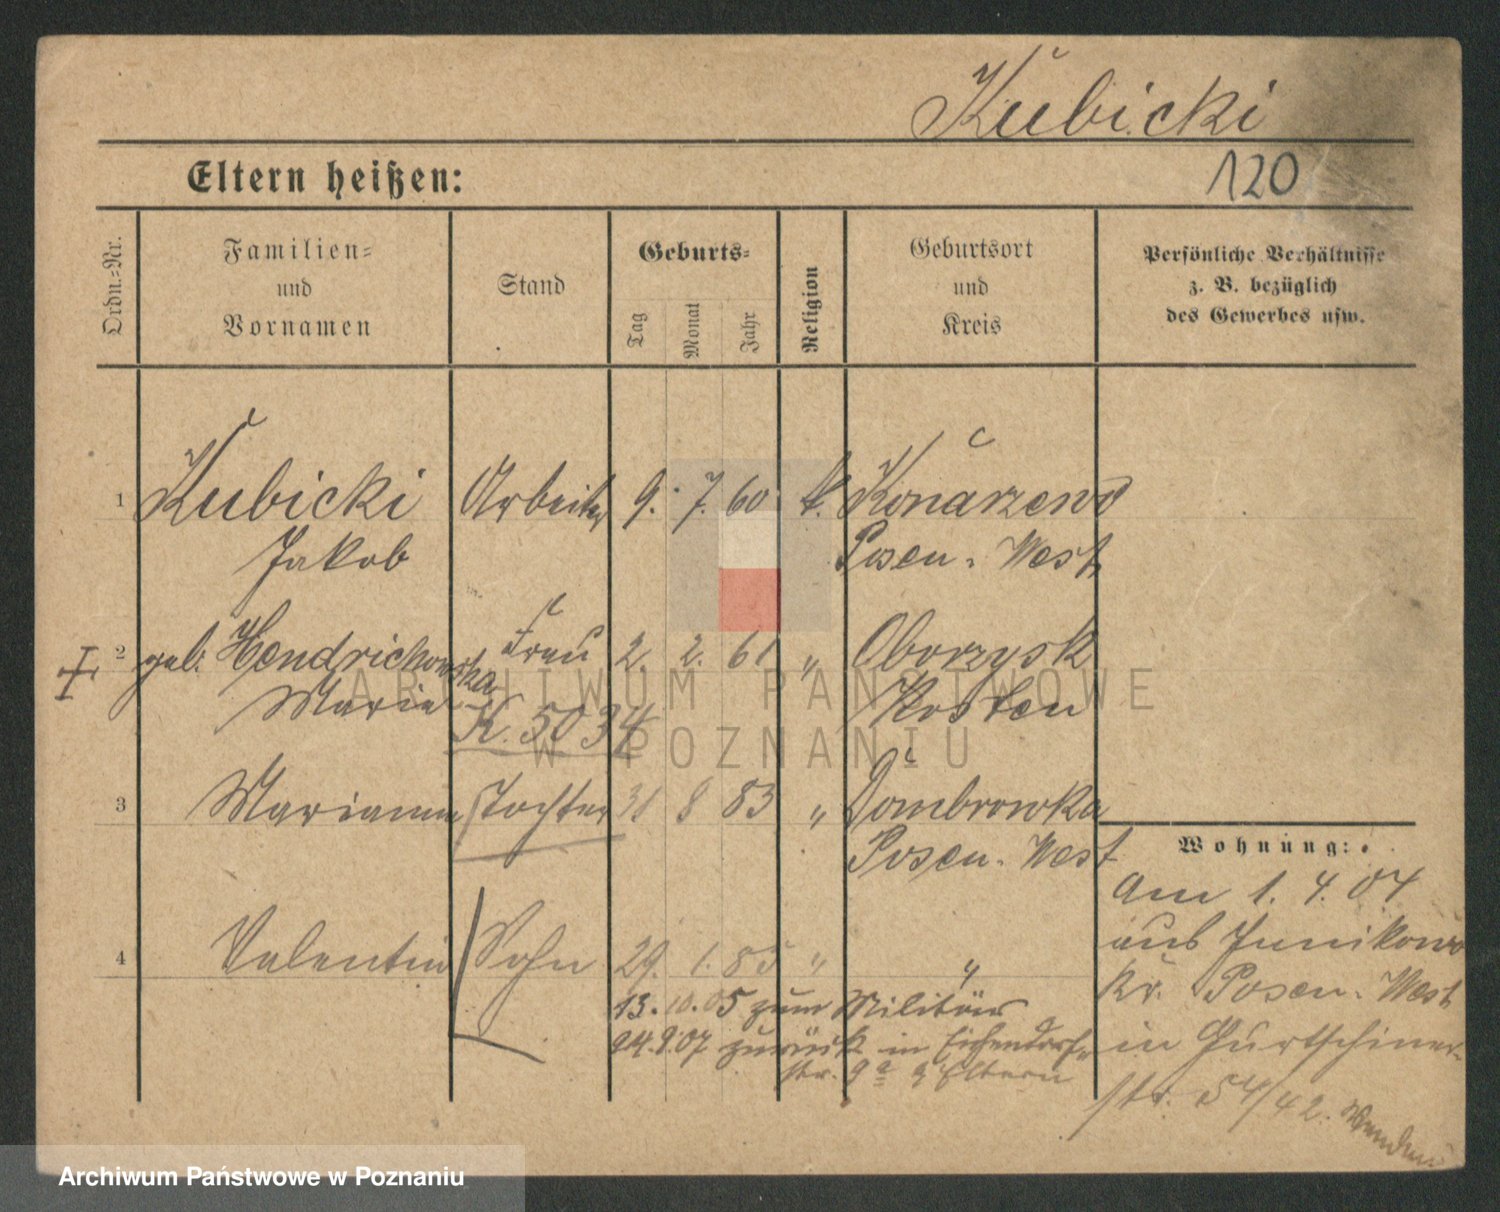 Kubicki
Eltern heißen:
120
Ordn.=Nr.
Familien=
und
Vornamen
Stand
Geburts=
Tag
Monat
Jahr
Religion
Geburtsort
und
Kreis
Persönliche Verhältnisse
z. B. bezüglich
des Gewerbes usw.
1 Kubicki Arbeiter 9. 7. 60 k. Konarzewo
Jakob Posen-West
2 geb. Hendrickowska Frau 2. 2. 61 " Oborzysk
Marie K. 5034 Kosten
3 Marianna Tochter 31 8 83 " Dombrowka
Posen-West
4 Valentin Sohn 29. 1. 85 " "
13.10.05 zum Militär
24.9.07 zurück in Eichendorff
str. 9 Eltern
Wohnung:
Am 1.4.04
aus Junikowo
Kr. Posen-West
in Gurtschiner-
str. 54/42. Wenden
ARCHIWUM PAŃSTWOWE
W POZNANIU
Archiwum Państwowe w Poznaniu